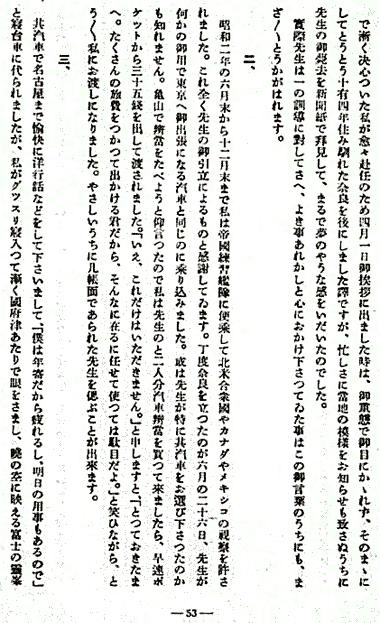 で漸く決心ついた私が愈々赴任のため四月一日御挨拶に出ました時は、御重態で御目にかゝれず、そのまゝに
してとうとう十有四年住み馴れた奈良を後にしました譯ですが、忙しさに當地の模様をお知らせも致さぬうちに
先生の御薨去を新聞紙で拜見して、まるで夢のやうな感をいだいたのでした。
實際先生は一の訓導に對してさへ、よき事あれかしと心におかけ下さつてゐた事はこの御言葉のうちにも、ま
ざ〳〵とうかがはれます。
二、
昭和二年の六月末から十二月末まで私は帝國練習艦隊に便乘して北米合衆國やカナダやメキシコの視察を許さ
れました。これ全く先生の御引立によるものと感謝してゐます。丁度奈良を立つたのが六月の二十六日、先生が
何かの御用で東京へ御出張になる汽車と同じのに乘り込みました。或は先生が特に其汽車をお選び下さつたのか
も知れません。龜山で辨當をたべようと仰言つたので私は先生のと二人分汽車辨當を買つて來ましたら、早速ポ
ケットから三十五錢を出して渡されました。「いえ、これだけはいただきません。」と申しますと、「とつておきたま
へ。たくさんの旅費をつかつて出かける君だから、そんなに在るに任せて使つては駄目だよ。」と笑ひながら、と
う〳〵私にお渡しになりました。やさしいうちに几帳面であられた先生を偲ぶことが出來ます。
三、
共汽車で名古屋まで愉快に洋行話などをして下さいまして「僕は年寄だから疲れるし、明日の用事もあるので」
と寢台車に代られましたが、私がグッスリ寢入つて漸く國府津あたりで眼をさまし、曉の空に映える富士の靈峯
― 53 ―